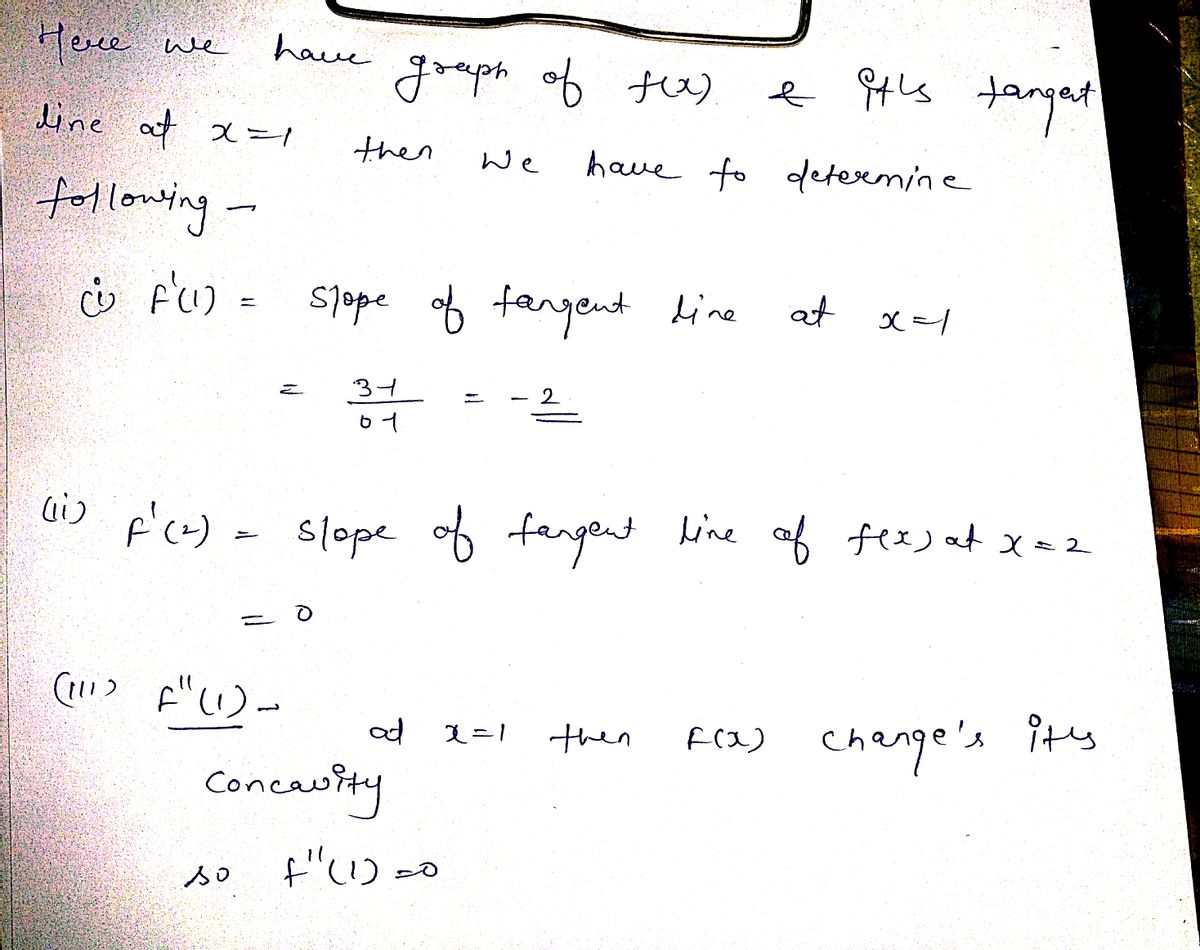 Here we have graph of f(x) & it's tangent
line at x=1 then we have to determine
following -
(i) f'(1) = slope of tangent line at x=1
= 3-1 / 0-1 = -2
(ii) f'(2) = slope of tangent line of f(x) at x=2
= 0
(iii) f''(1) -
at x=1 then f(x) change's its
concavity
so f''(1) =0